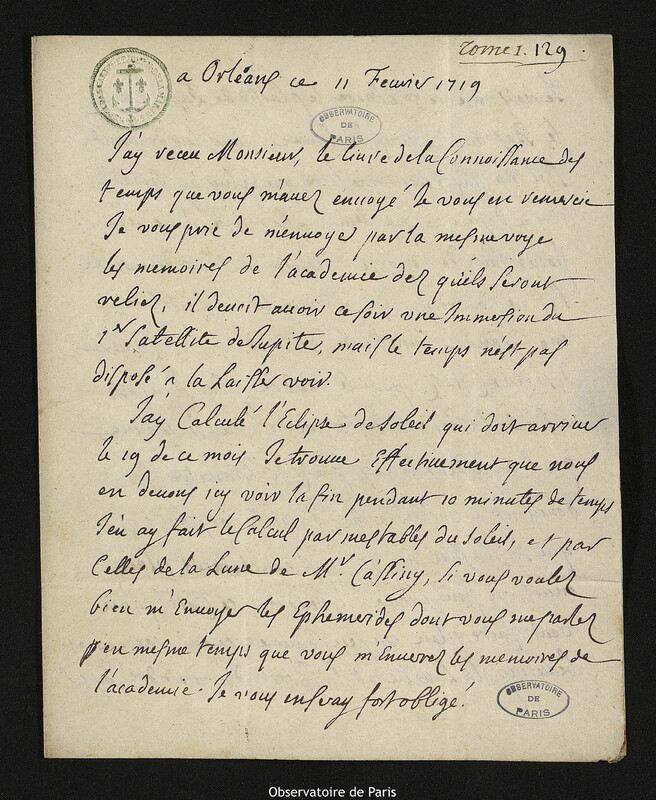 Tome 1. 129
a Orleans ce 11 Fevrier 1719
OBSERVATOIRE
DE
PARIS
J'ay receu Monsieur, le livre de la Connoissance des
temps que vous m'avez envoyé Je vous en remercie
Je vous prie de m'envoyer par la mesme voye
les memoires de l'academie dez qu'ils seront
reliez, il devoit avoir ce soir une Immersion du
1er Satellite de Jupiter, mais le temps n'est pas
disposé a la Laisser voir.
J'ay Calculé l'Eclipse de Soleil qui doit arriver
le 19 de ce mois Je trouve Effectivement que nous
en devons icy voir la fin pendant 10 minutes de temps
J'en ay fait le Calcul par mes tables du Soleil, et par
Celles de la Lune de Mr. Cassiny, si vous voulez
bien m'Envoyer les Ephemerides dont vous me parlez
en mesme temps que vous m'Enverrez les memoires de
l'academie. Je vous en seray fort obligé.
OBSERVATOIRE
DE
PARIS
Observatoire de Paris